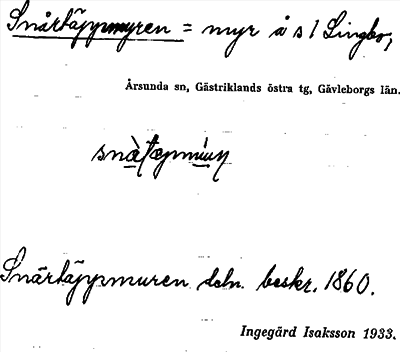 Snårtäppmyren = myr å s 1 Lingbo,
Årsunda sn, Gästriklands östra tg, Gävleborgs län.
Snårtäppsmuren dshn. beskr. 1860.
Ingegärd Isaksson 1933.